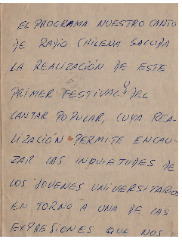 EL PROGRAMA NUESTRO CANTO
DE RADIO CHILENA SALUDA
LA REALIZACIÓN DE ESTE
PRIMER FESTIVAL DEL
CANTAR POPULAR, CUYA REA-
LIZACIÓN PERMITE ENCAU-
ZAR LAS INQUIETUDES DE
LOS JOVENES UNIVERSITARIOS
EN TORNO A UNA DE LAS
EXPRESIONES QUE NOS